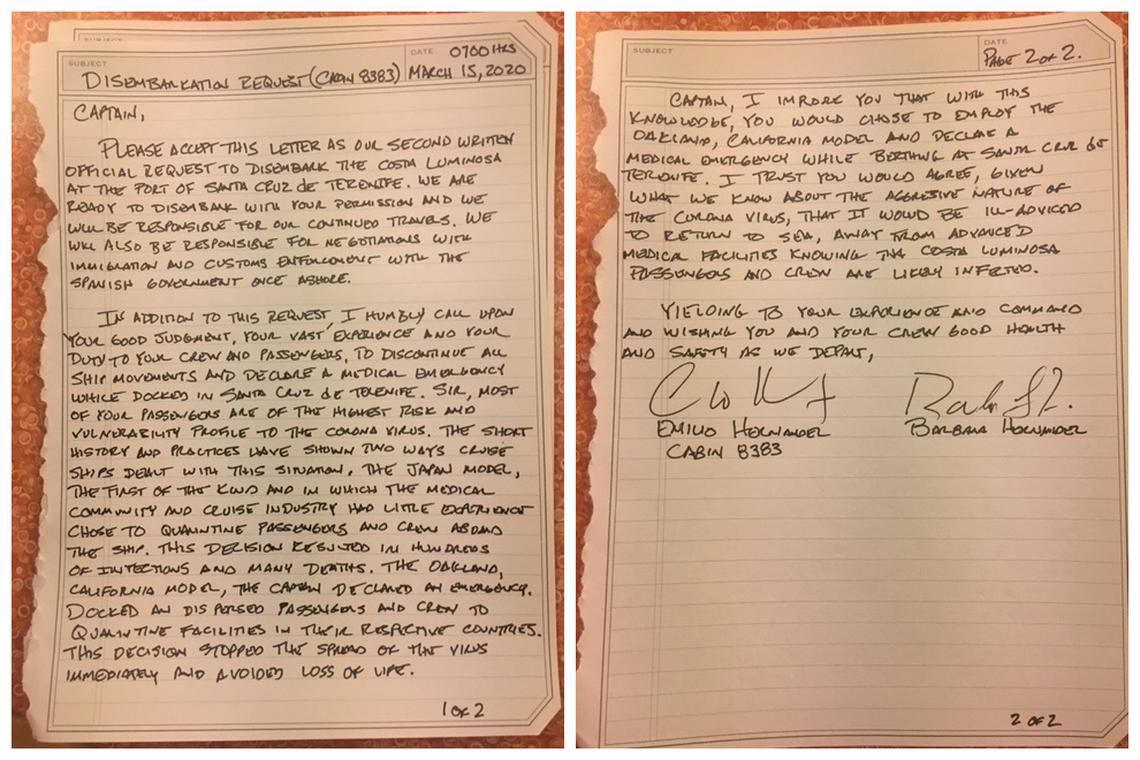 SUBJECT
SUBJECT
DISEMBARKATION REQUEST (CABIN 8383)
DATE 0700 HRS
MARCH 15, 2020
CAPTAIN,
PLEASE ACCEPT THIS LETTER AS OUR SECOND WRITTEN
OFFICIAL REQUEST TO DISEMBARK THE COSTA LUMINOSA
AT THE PORT OF SANTA CRUZ de TERENIFE. WE ARE
READY TO DISEMBARK WITH YOUR PERMISSION AND WE
WILL BE RESPONSIBLE FOR OUR CONTINUED TRAVELS. WE
WILL ALSO BE RESPONSIBLE FOR NEGOTIATIONS WITH
IMMIGRATION AND CUSTOMS ENFORCEMENT WITH THE
SPANISH GOVERNMENT ONCE ASHORE.
IN ADDITION TO THIS REQUEST, I HUMBLY CALL UPON
YOUR GOOD JUDGMENT, YOUR VAST EXPERIENCE AND YOUR
DUTY TO YOUR CREW AND PASSENGERS, TO DISCONTINUE ALL
SHIP MOVEMENTS AND DECLARE A MEDICAL EMERGENCY
WHILE DOCKED IN SANTA CRUZ de TERENIFE. SIR, MOST
OF YOUR PASSENGERS ARE OF THE HIGHEST RISK AND
VULNERABILITY PROFILE TO THE CORONA VIRUS. THE SHORT
HISTORY AND PRACTICES HAVE SHOWN TWO WAYS CRUISE
SHIPS DEALT WITH THIS SITUATION. THE JAPAN MODEL,
THE FIRST OF THE KIND AND IN WHICH THE MEDICAL
COMMUNITY AND CRUISE INDUSTRY HAD LITTLE EXPERIENCE
CHOSE TO QUARINTINE PASSENGERS AND CREW ABOARD
THE SHIP. THIS DECISION RESULTED IN HUNDREDS
OF INFECTIONS AND MANY DEATHS. THE OAKLAND,
CALIFORNIA MODEL, THE CAPTAIN DECLARED AN EMERGENCY.
DOCKED AN DISPERSED PASSENGERS AND CREW TO
QUARINTINE FACILITIES IN THEIR RESPECTIVE COUNTRIES.
THIS DECISION STOPPED THE SPREAD OF THE VIRUS
IMMEDIATELY AND AVOIDED LOSS OF LIFE.
1 OF 2
SUBJECT
DATE
PAGE 2 OF 2.
CAPTAIN, I IMPLORE YOU THAT WITH THIS
KNOWLEDGE, YOU WOULD CHOSE TO EMPLOY THE
OAKLAND, CALIFORNIA MODEL AND DECLARE A
MEDICAL EMERGENCY WHILE BERTHING AT SANTA CRUZ de
TERENIFE. I TRUST YOU WOULD AGREE, GIVEN
WHAT WE KNOW ABOUT THE AGGRESIVE NATURE OF
THE CORONA VIRUS, THAT IT WOULD BE ILL-ADVICED
TO RETURN TO SEA, AWAY FROM ADVANCED
MEDICAL FACILITIES KNOWING THE COSTA LUMINOSA
PASSENGERS AND CREW ARE LIKELY INFECTED.
YIELDING TO YOUR EXPERIENCE AND COMMAND
AND WISHING YOU AND YOUR CREW GOOD HEALTH
AND SAFETY AS WE DEPART,
EMILIO HERNANDEZ BARBARA HERNANDEZ
CABIN 8383
2 OF 2